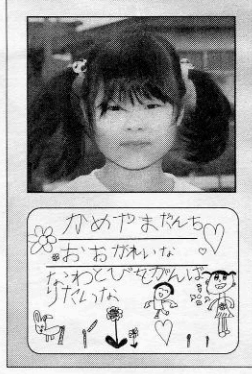 かめやまだんち
おおがれいな
なわとびをがんば
りたいな